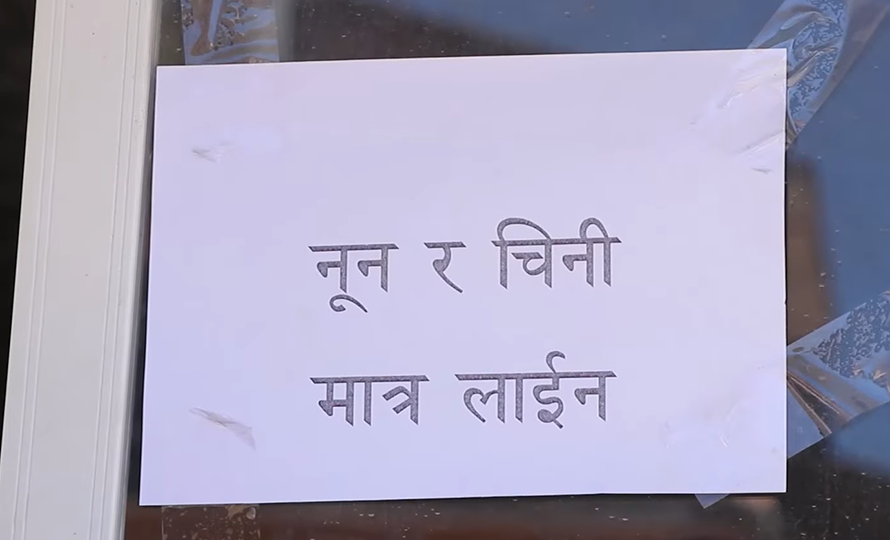 नून र चिनी
मात्र लाईन